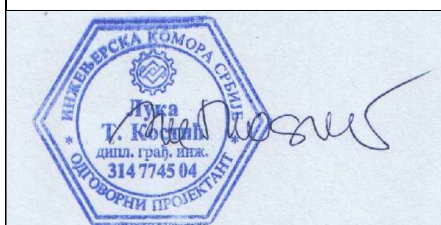 ИНЖЕЊЕРСКА КОМОРА СРБИЈЕ
Лука
Т. Костић
дипл. грађ. инж.
314 7745 04
ОДГОВОРНИ ПРОЈЕКТАНТ